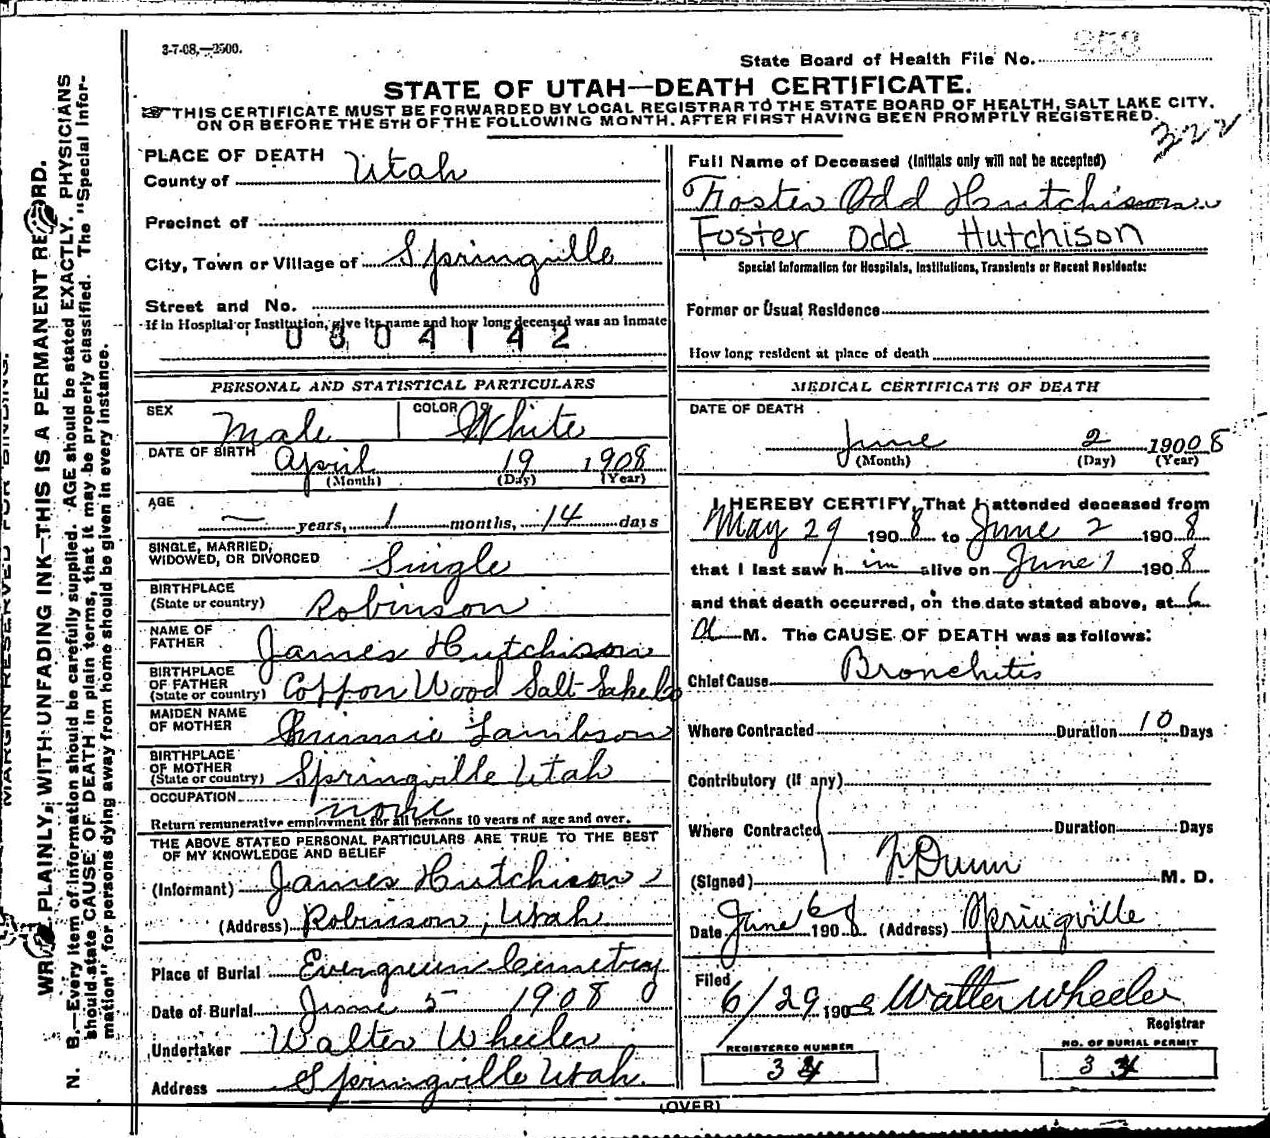 3-7-08,—2500.
State Board of Health File No. 353
STATE OF UTAH—DEATH CERTIFICATE.
THIS CERTIFICATE MUST BE FORWARDED BY LOCAL REGISTRAR TO THE STATE BOARD OF HEALTH, SALT LAKE CITY,
ON OR BEFORE THE 5TH OF THE FOLLOWING MONTH. AFTER FIRST HAVING BEEN PROMPTLY REGISTERED.
322
PLACE OF DEATH
County of Utah
Precinct of
City, Town or Village of Springville
Street and No.
If in Hospital or Institution, give its name and how long deceased was an inmate
0 3 0 4 1 4 2
PERSONAL AND STATISTICAL PARTICULARS
SEX Male COLOR White
DATE OF BIRTH April 19 1908
(Month) (Day) (Year)
AGE — years, 1 months, 14 days
SINGLE, MARRIED,
WIDOWED, OR DIVORCED Single
BIRTHPLACE
(State or country) Robinson
NAME OF
FATHER James Hutchison
BIRTHPLACE
OF FATHER
(State or country) Wood Salt Lake Co
MAIDEN NAME
OF MOTHER Lambson
BIRTHPLACE
OF MOTHER
(State or country) Springville Utah
OCCUPATION none
Return remunerative employment for all persons 10 years of age and over.
THE ABOVE STATED PERSONAL PARTICULARS ARE TRUE TO THE BEST
OF MY KNOWLEDGE AND BELIEF
(Informant) James Hutchison
(Address) Robinson, Utah
Place of Burial Evergreen Cemetry
Date of Burial June 5 1908
Undertaker Walter Wheeler
Address Springville Utah.
Full Name of Deceased (Initials only will not be accepted)
Foster Odd Hutchison
Foster Odd Hutchison
Special Information for Hospitals, Institutions, Transients or Recent Residents:
Former or Usual Residence
How long resident at place of death
MEDICAL CERTIFICATE OF DEATH
DATE OF DEATH
June 2 19008
(Month) (Day) (Year)
I HEREBY CERTIFY, That I attended deceased from
May 29 1908 to June 2 1908
that I last saw him alive on June 1 1908
and that death occurred, on the date stated above, at 6
a M. The CAUSE OF DEATH was as follows:
Chief Cause Bronchitis
Where Contracted Duration 10 Days
Contributory (if any)
Where Contracted Duration Days
(Signed) F. Dunn M. D.
Date June 6 1908 (Address) Springville
Filed 6/29 1908 Walter Wheeler
Registrar
REGISTERED NUMBER
NO. OF BURIAL PERMIT
(OVER)
MARGIN RESERVED FOR BINDING.
WRITE PLAINLY, WITH UNFADING INK—THIS IS A PERMANENT RECORD.
N. B.—Every item of information should be carefully supplied. AGE should be stated EXACTLY. PHYSICIANS
should state CAUSE OF DEATH in plain terms, that it may be properly classified. The "Special Infor-
mation" for persons dying away from home should be given in every instance.